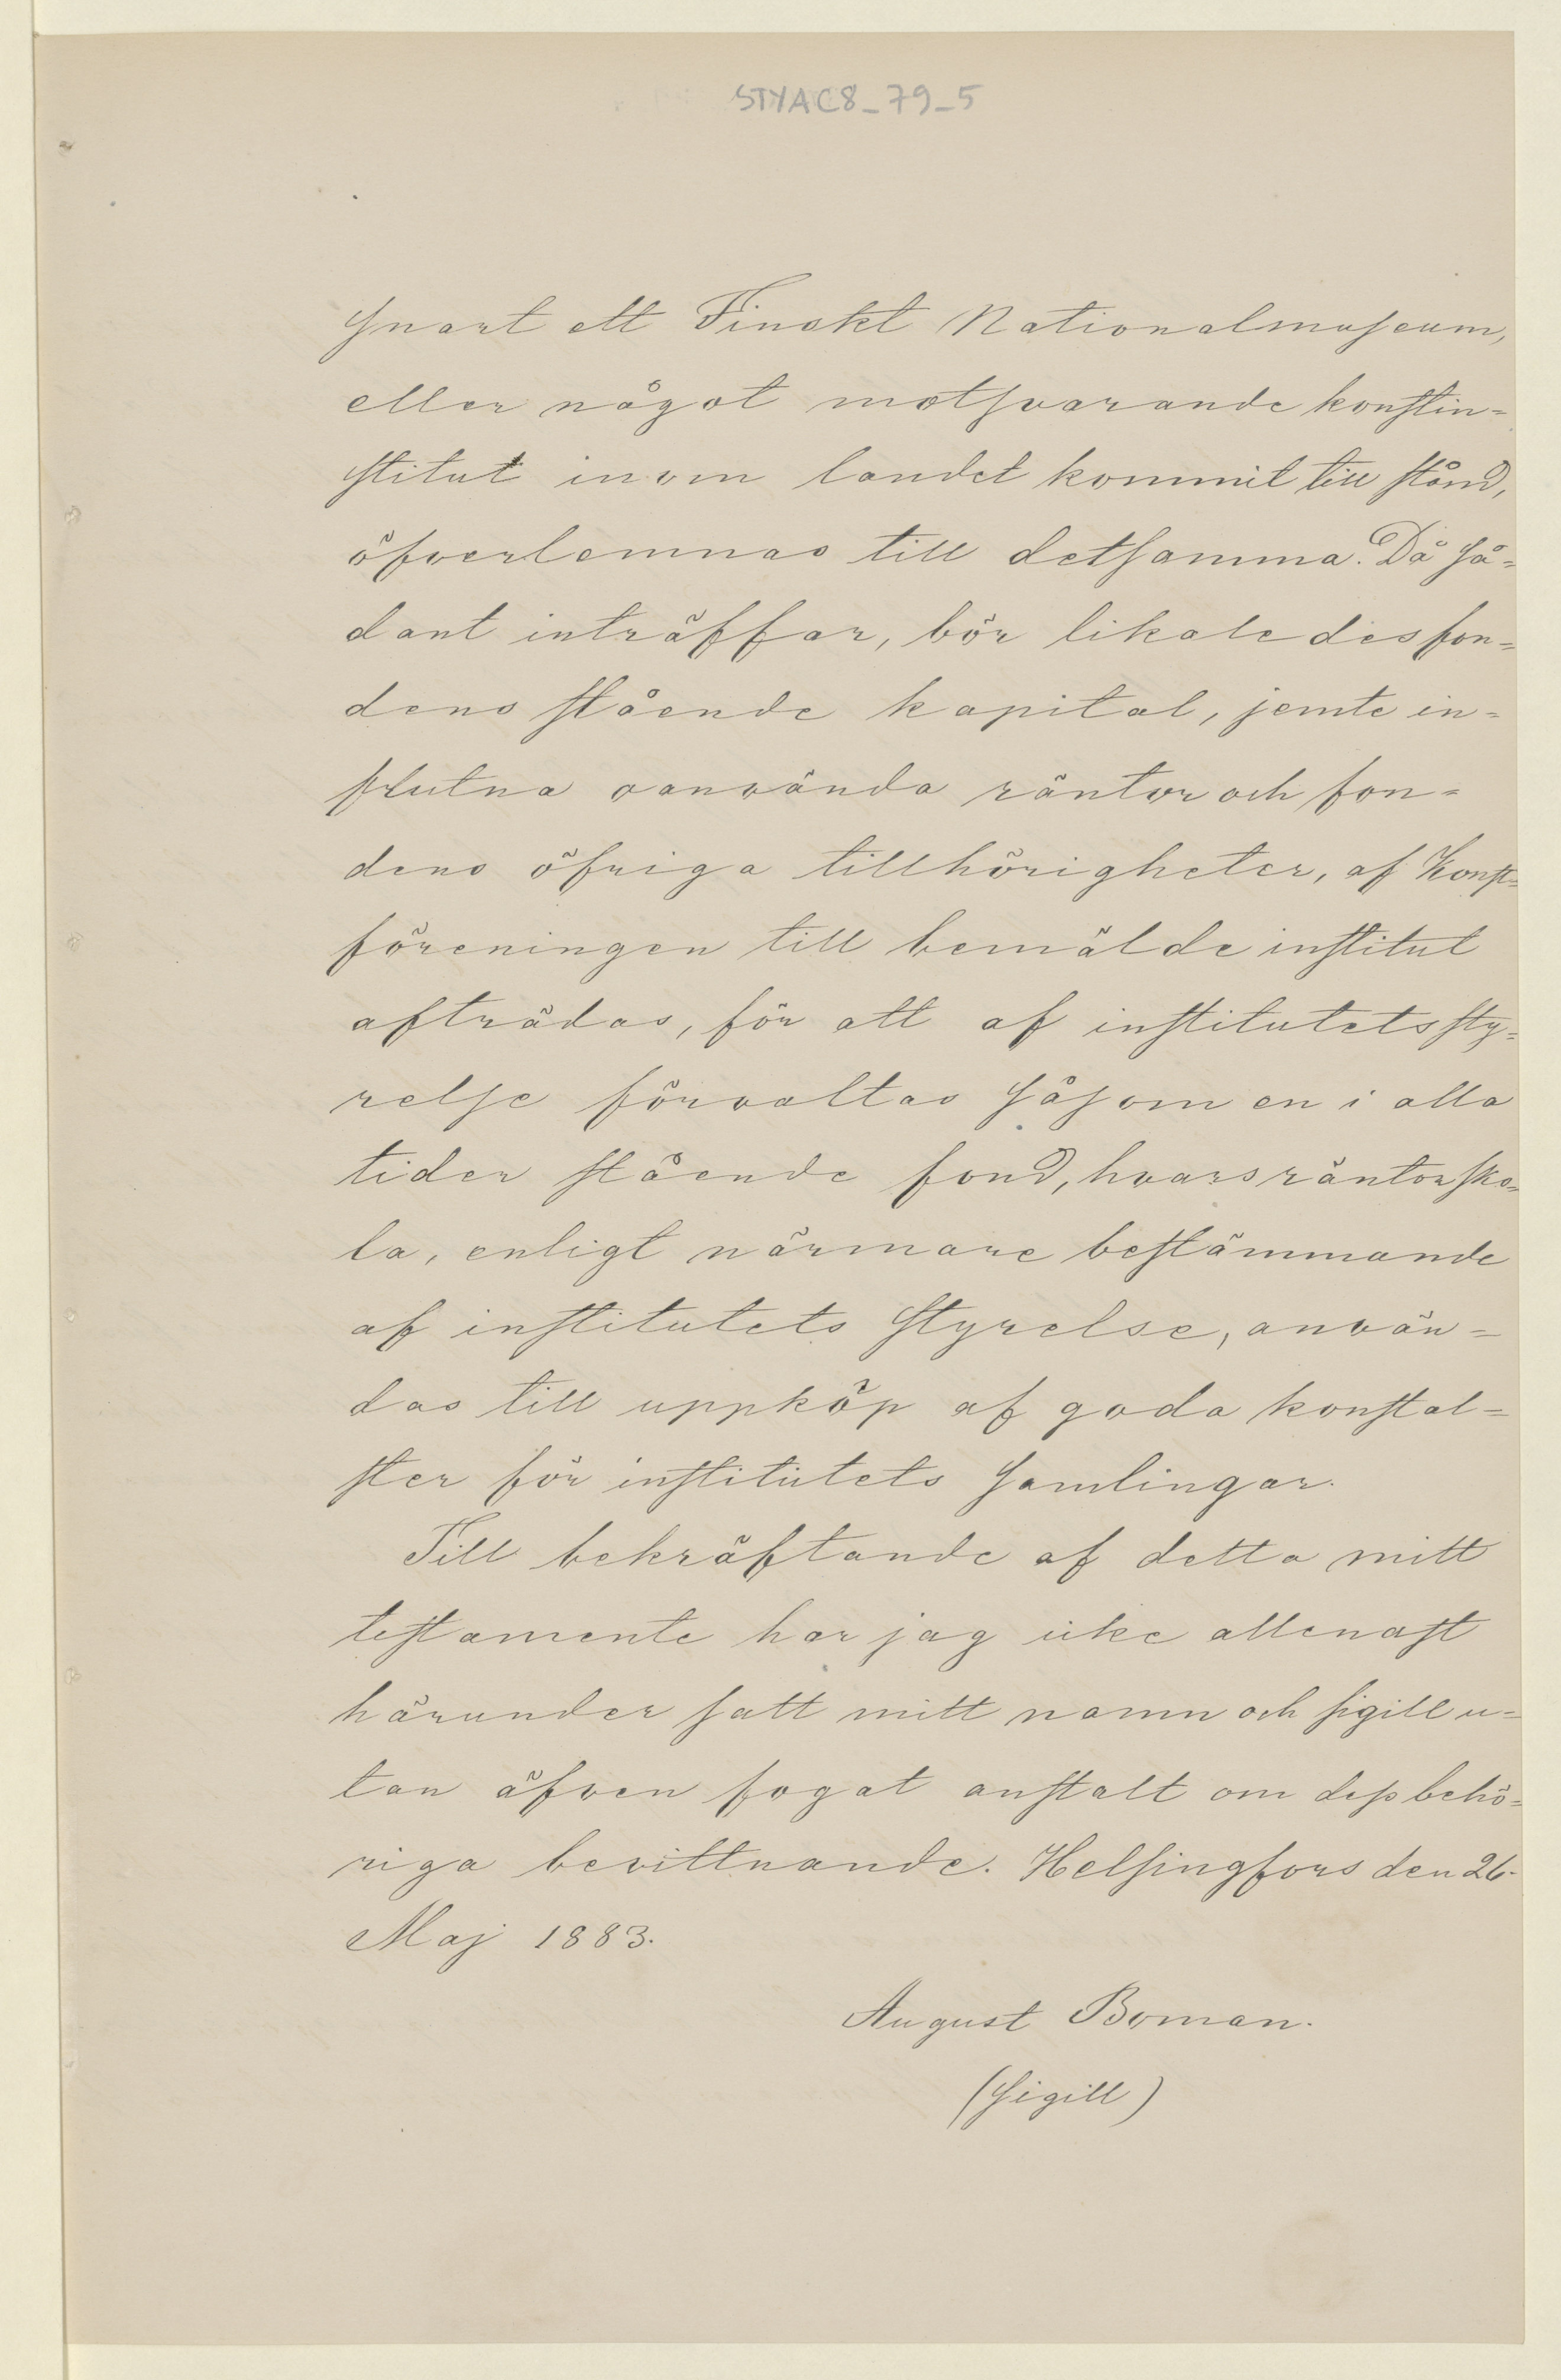 STYAC8_79_5
snart ett Finskt Nationalmuseum,
eller något motsvarande konstin=
stitut inom landet kommit till stånd,
öfverlemnas till detsamma. Då så=
dant inträffar, bör likaledes fon=
dens stående kapital, jemte in=
flutna oanvända räntor och fon=
dens öfriga tillhörigheter, af Konst=
föreningen till bemälde institut
afträdas, för att af institutets sty=
relse förvaltas såsom en i alla
tider stående fond, hvars räntor sko=
la, enligt närmare bestämmande
af institutets styrelse, använ=
das till uppköp af goda konstal=
ster för institutets samlingar.
Till bekräftande af detta mitt
testamente har jag icke allenast
härunder satt mitt namn och sigill u=
tan äfven fogat anstalt om dess behö=
riga bevittnande. Helsingfors den 26.
Maj 1883.
August Boman.
(Sigill)